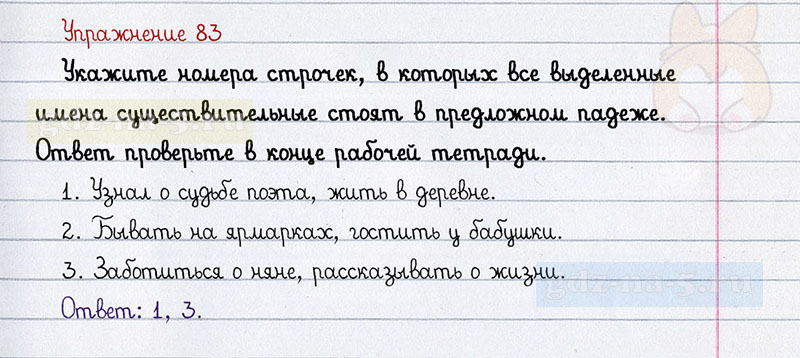 Упражнение 83
Укажите номера строчек, в которых все выделенные
имена существительные стоят в предложном падеже.
Ответ проверьте в конце рабочей тетради.
1. Узнал о судьбе поэта, жить в деревне.
2. Бывать на ярмарках, гостить у бабушки.
3. Заботиться о няне, рассказывать о жизни.
gdz-na-5.ru
Ответ: 1, 3.